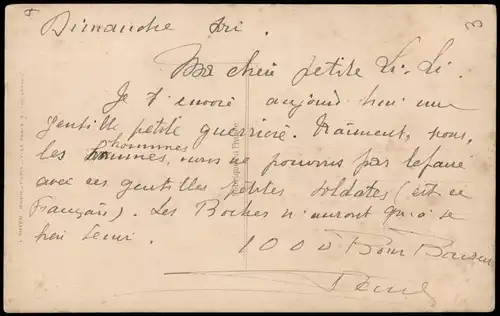 Dimanche soir.
Ma chère petite Li-Li.
Je t'envoie aujourd'hui une
gentille petite guerrière. Vraiment, nous,
les hommes, nous ne pouvons pas
avec ces gentilles petites soldates (est ce
Français). Les Boches n'auront qu'à se
bien tenir.
1000 Bons Baisers